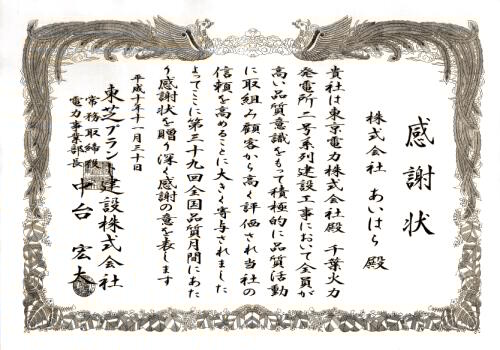 感謝状
株式会社 あいはら 殿
貴社は東京電力株式会社殿 千葉火力
発電所二号系列建設工事において全員が
高い品質意識をもって積極的に品質活動
に取組み顧客から高く評価され当社の
信頼を高めることに大きく寄与されました
よってここに第三十九回全国品質月間にあた
り感謝状を贈り深く感謝の意を表します
平成十年十一月三十日
東芝プラント建設株式会社
常務取締役
電力事業部長
中台 宏大